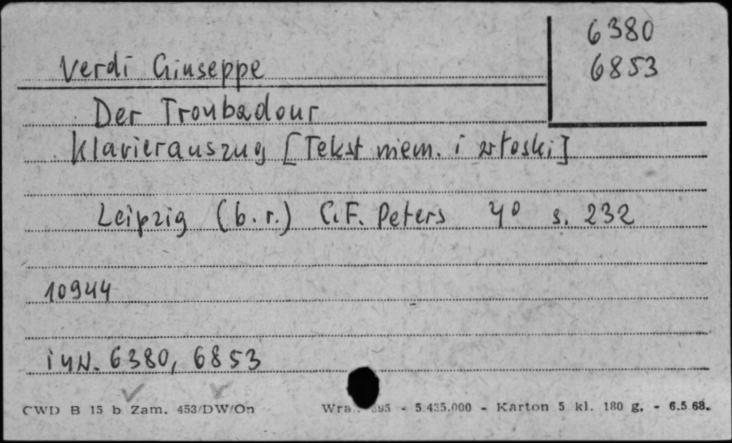 6380
6853
Verdi Giuseppe
Der Troubadour
Klavierauszug [Tekst niem. i włoski]
Leipzig (b.r.) C.F. Peters 4° s. 232
10944
inw. 6380, 6853
CWD B 15 b Zam. 453/DW/On - 5.435.000 - Karton 5 kl. 180 g. - 6.5.68.